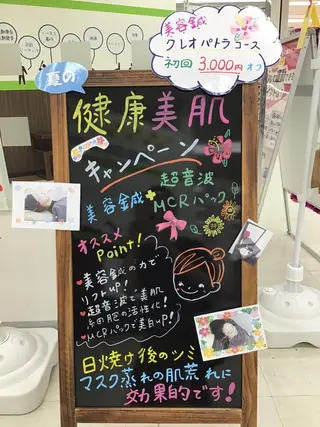 美容鍼
クレオパトラコース
初回 3,000円オフ
夏の
健康美肌
キャンペーン
美容鍼 + 超音波
MCRパック
オススメ
Point!
美容鍼の力で
リフトUP!
超音波で美肌
細胞の活性化!
MCRパックで美白UP!
日焼け後のシミ
マスク蒸れの肌荒れに
効果的です!